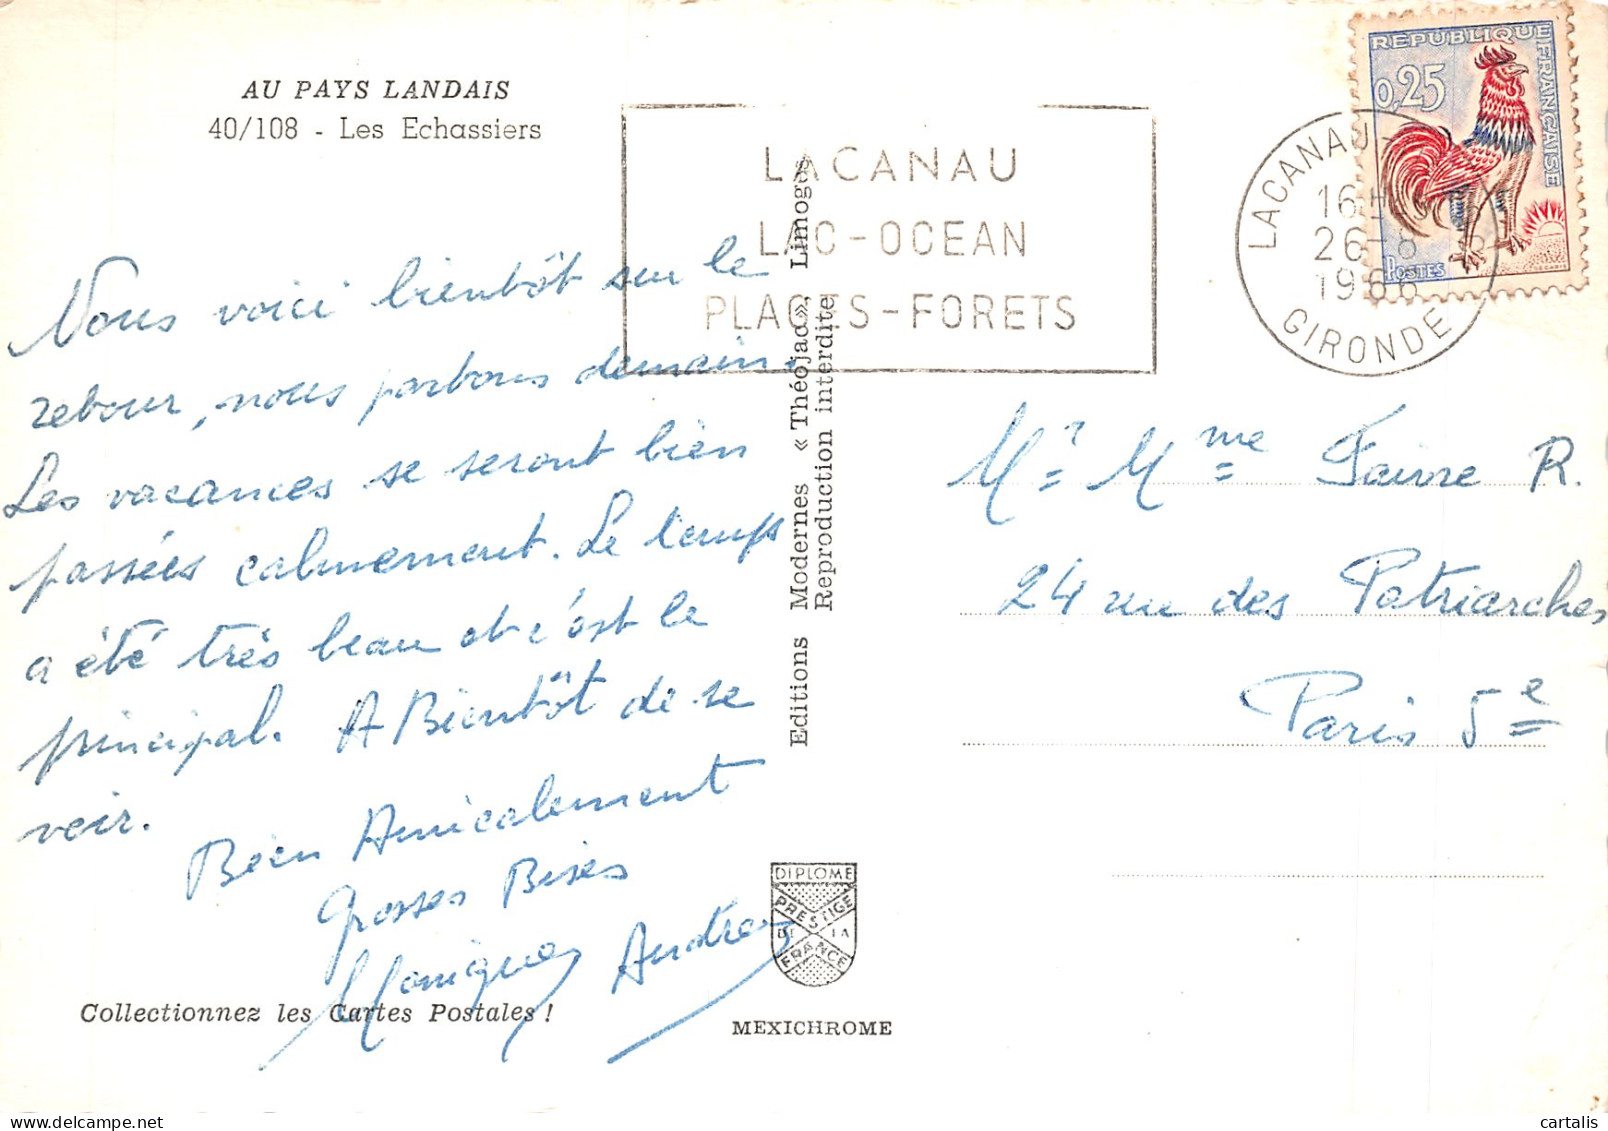 AU PAYS LANDAIS
40/108 - Les Echassiers
LACANAU
LAC-OCEAN
PLAGES-FORETS
LACANAU
16 H
26-8
1966
GIRONDE
REPUBLIQUE FRANÇAISE
0,25
POSTES
DECARIS
Nous voici bientôt sur le
retour, nous partons demain.
Les vacances se seront bien
passées calmement. Le temps
a été très beau et c'est le
principal. A Bientôt de se
voir.
Bien Amicalement
Grosses Bises
Monique Andrée
Editions Modernes « Théojac », Limoges
Reproduction interdite
Mr Mme Faivre R.
24 rue des Patriarches
Paris 5e
DIPLOME
PRESTIGE
DE LA
FRANCE
Collectionnez les Cartes Postales !
MEXICHROME
delcampe.net
cartalis